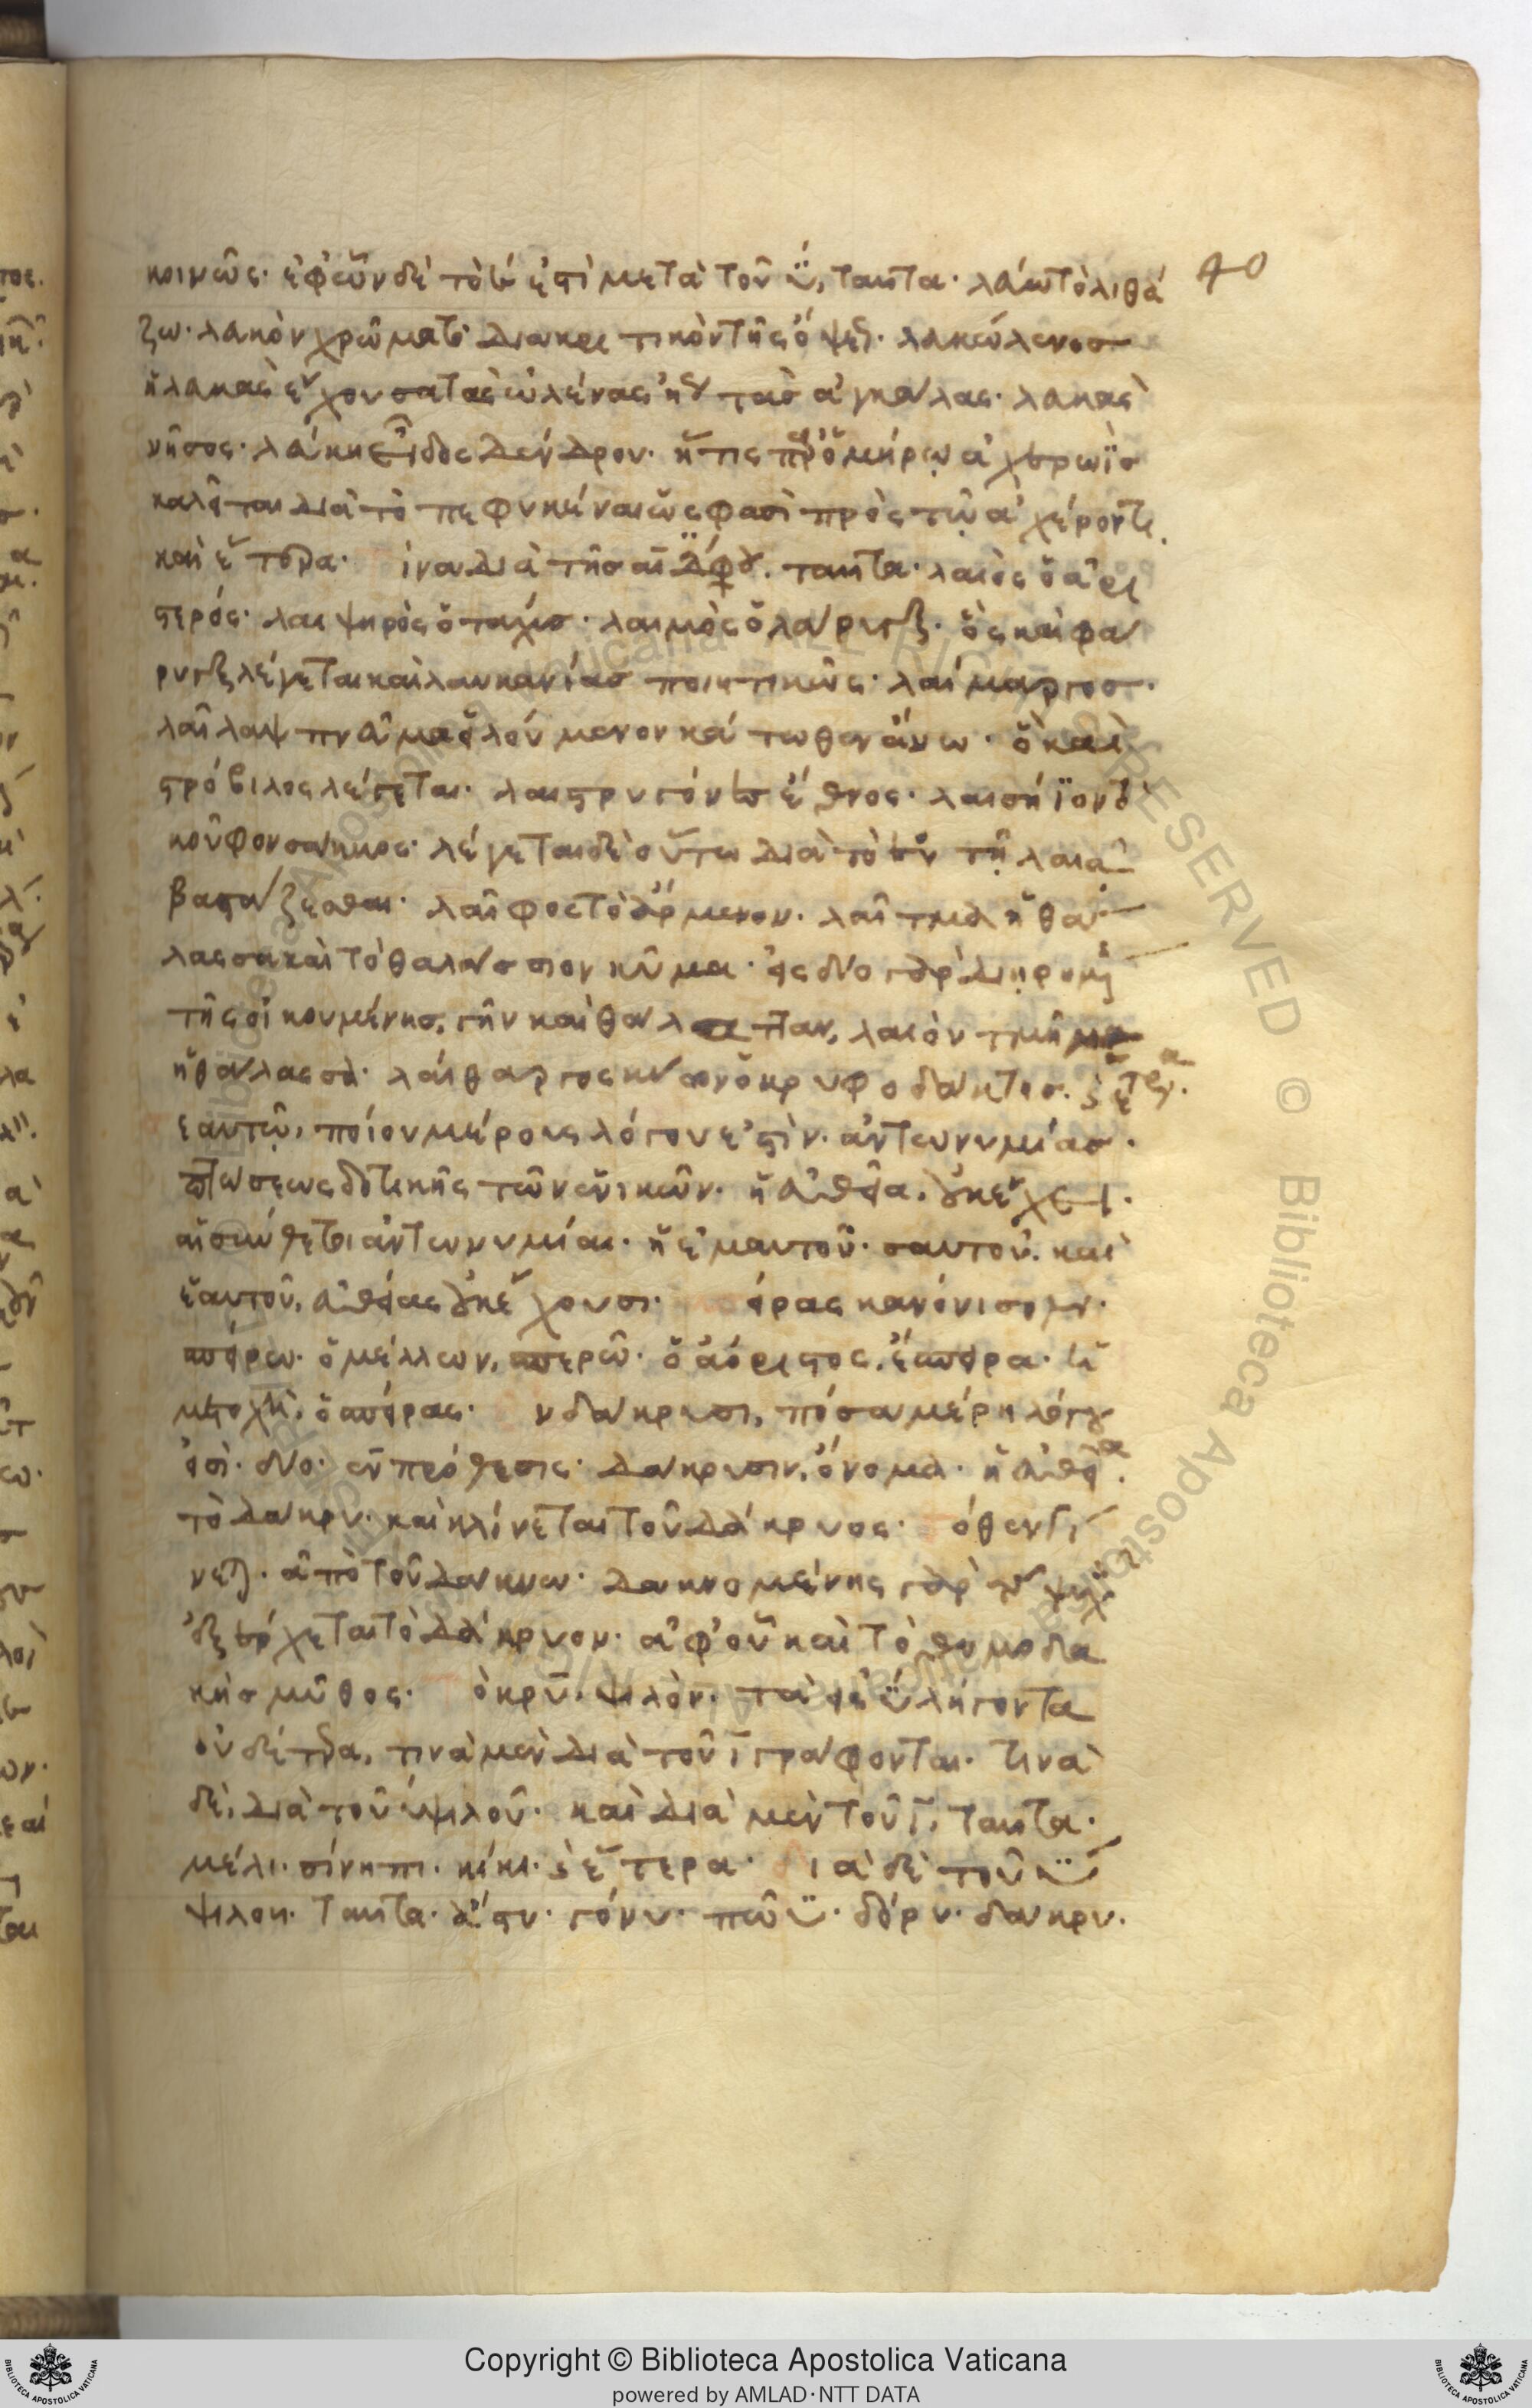 40
κοινῶς· ἐφ' ὧν δὲ τὸ ἐστὶ μετὰ τοῦ ϋ, ταῦτα· λάω τὸ λιθά
ζω· λακὸν χρῶμα τὸ διακριτικὸν τῆς ὄψεως· λακώλενος
ἡ λακὰς ἔχουσα τὰς ὠλένας ἤγουν τὰς ἀγκάλας· λακὰς
νῆσος· λάκη εἶδος δένδρον· ἥτις παρ' ὁμήρῳ ἀχερωῒς
καλεῖται διὰ τὸ πεφυκέναι ὥς φασι πρὸς τῷ ἀχέροντι
καὶ ἕτερα· ἵνα διὰ τῆς αι διφθόγγου, ταῦτα· λαιὸς ὁ ἀρι
στερός· λαιψηρὸς ὁ ταχύς· λαιμὸς ὁ λάρυγξ· ὃς καὶ φά
ρυγξ λέγεται καὶ λαυκανίας ποιητικῶς· λαίμαργος·
λαῖλαψ πνεῦμα εἰλούμενον κάτωθεν ἄνω· ὃ καὶ
στρόβιλος λέγεται· λαιστρυγόνες ἔθνος· λαισήϊον τὸ
κοῦφον σάκος· λέγεται δὲ οὕτω διὰ τὸ ἐν τῇ λαιᾷ
βαστάζεσθαι· λαῖφος τὸ ἄρμενον· λαῖτμα ἡ θά
λασσα καὶ τὸ θαλάσσιον κῦμα· εἰς δύο γὰρ διῃρημένης
τῆς οἰκουμένης, γῆν καὶ θάλατταν, λαιὸν τμῆμα
ἡ θάλασσα· λαίθαργος κύων ὁ κρυφοδάκτης. καὶ ἕτερα.
ἑαυτῷ, ποίου μέρους λόγου ἐστίν· ἀντωνυμίας·
πτώσεως δοτικῆς τῶν ἑνικῶν· ἡ εὐθεῖα, οὐκ ἔχει·
αἱ σύνθετοι ἀντωνυμίαι· ἡ ἐμαυτοῦ· σαυτοῦ· καὶ
ἑαυτοῦ, εὐθείας οὐκ ἔχουσι· σπείρας κανόνισον·
σπείρω· ὁ μέλλων, σπερῶ· ὁ ἀόριστος, ἔσπειρα· ἡ
μετοχὴ, ὁ σπείρας· ἐν δάκρυσι, πόσα μέρη λόγου
εἰσί· δύο· ἐν πρόθεσις· δάκρυσιν, ὄνομα· ἡ εὐθεῖα
τὸ δάκρυ· καὶ κλίνεται τοῦ δάκρυος· πόθεν γί
νεται· ἀπὸ τοῦ δάκνω· δακνομένης γὰρ τῆς ψυχῆς
ἐξέρχεται τὸ δάκρυον· ἀφ' οὗ καὶ τὸ θυμοδα
κὴς μῦθος· τὸ κρυ, ψιλόν· τὰ εἰς ϋ λήγοντα
οὐδέτερα, τινὰ μὲν διὰ τοῦ ι γράφονται· τινὰ
δὲ, διὰ τοῦ ὑψιλοῦ· καὶ διὰ μὲν τοῦ ι, ταῦτα·
μέλι· σίνηπι· κίκι· καὶ ἕτερα· διὰ δὲ τοῦ ϋ
ψιλοῦ· ταῦτα· ἄστυ· γόνυ· πῶϋ· δόρυ· δάκρυ·
Copyright © Biblioteca Apostolica Vaticana
powered by AMLAD·NTT DATA